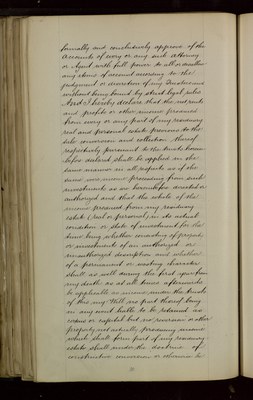 formally and conclusively approve of the
accounts of every or any such Attorney
or Agent with full power to allow or disallow
any items of account according to the
judgment or discretion of my
without being bound by strict legal rules
And I hereby declare that the net rents
and profits or other income produced
from every or any part of my residuary
real and personal estate previous to the
sale conversion and collection thereof
respectively pursuant to the trusts herein
before declared shall be applied in the
same manner in all respects as if the
same were income proceeding from such
investments as are hereinbefore directed or
authorized and that the whole of the
income produced from my residuary
estate (real or personal) in its actual
condition or state of investment for the
time being whether consisting of property
or investments of an authorized or
unauthorized description and whether
of a permanent or wasting character
shall as well during the first year from
my death as at all times afterwards
be applicable as income under the trusts
of this my Will no part thereof being
in any event liable to be retained as
corpus or capital but no reversion or other
property not actually producing income
which shall form part of my residuary
estate shall under the doctrine of
constructive conversion or otherwise be